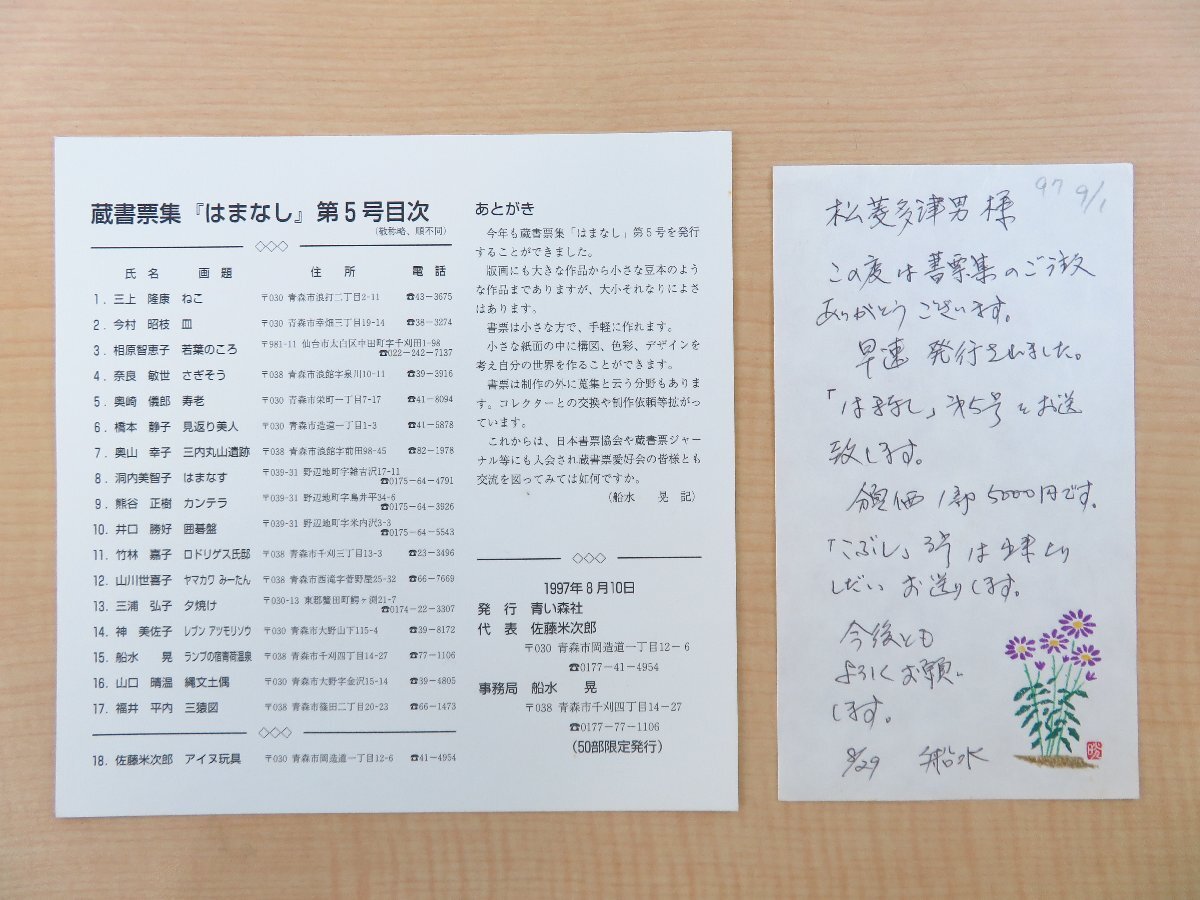 蔵書票集『はまなし』第5号目次
(敬称略、順不同)
氏名 画題 住所 電話
1. 三上 隆康 ねこ 〒030 青森市浪打二丁目2-11 ☎43-3675
2. 今村 昭枝 皿 〒030 青森市幸畑三丁目19-14 ☎38-3274
3. 相原智恵子 若葉のころ 〒981-11 仙台市太白区中田町字千刈田1-98
☎022-242-7137
4. 奈良 敏世 さぎそう 〒038 青森市浪館字泉川10-11 ☎39-3916
5. 奥崎 儀郎 寿老 〒030 青森市栄町一丁目7-17 ☎41-8094
6. 橋本 静子 見返り美人 〒030 青森市造道一丁目1-3 ☎41-5878
7. 奥山 幸子 三内丸山遺跡 〒038 青森市浪館字前田98-45 ☎82-1978
8. 洞内美智子 はまなす 〒039-31 野辺地町字雑吉沢17-11
☎0175-64-4791
9. 熊谷 正樹 カンテラ 〒039-31 野辺地町字鳥井平34-6
☎0175-64-3926
10. 井口 勝好 囲碁盤 〒039-31 野辺地町字米内沢3-3
☎0175-64-5543
11. 竹林 嘉子 ロドリゲス氏邸 〒038 青森市千刈三丁目13-3 ☎23-3496
12. 山川世喜子 ヤマカワ みーたん 〒038 青森市西滝字菅野屋25-32 ☎66-7669
13. 三浦 弘子 夕焼け 〒030-13 東郡蟹田町鰐ヶ渕21-7
☎0174-22-3307
14. 神 美佐子 レブン アツモリソウ 〒030 青森市大野山下115-4 ☎39-8172
15. 船水 晃 ランプの宿青荷温泉 〒038 青森市千刈四丁目14-27 ☎77-1106
16. 山口 晴温 縄文土偶 〒030 青森市大野字金沢15-14 ☎39-4805
17. 福井 平内 三猿図 〒038 青森市篠田二丁目20-23 ☎66-1473
18. 佐藤米次郎 アイヌ玩具 〒030 青森市岡造道一丁目12-6 ☎41-4954
あとがき
今年も蔵書票集「はまなし」第5号を発行
することができました。
版画にも大きな作品から小さな豆本のよう
な作品までありますが、大小それなりによさ
はあります。
書票は小さな方で、手軽に作れます。
小さな紙面の中に構図、色彩、デザインを
考え自分の世界を作ることができます。
書票は制作の外に蒐集と云う分野もありま
す。コレクターとの交換や制作依頼等拡がっ
ています。
これからは、日本書票協会や蔵書票ジャー
ナル等にも入会され蔵書票愛好会の皆様とも
交流を図ってみては如何ですか。
(船水 晃 記)
1997年8月10日
発行 青い森社
代表 佐藤米次郎
〒030 青森市岡造道一丁目12-6
☎0177-41-4954
事務局 船水 晃
〒038 青森市千刈四丁目14-27
☎0177-77-1106
(50部限定発行)
97 9/1
松菱多津男様
この度は書票集のご注文
ありがとうございます。
早速 発行されました。
「はまなし」第5号をお送
致します。
価 1部 5000円です。
「こぶし」3号は
しだい お送りします。
今後とも
よろしくお願い
します。
8/29 船水